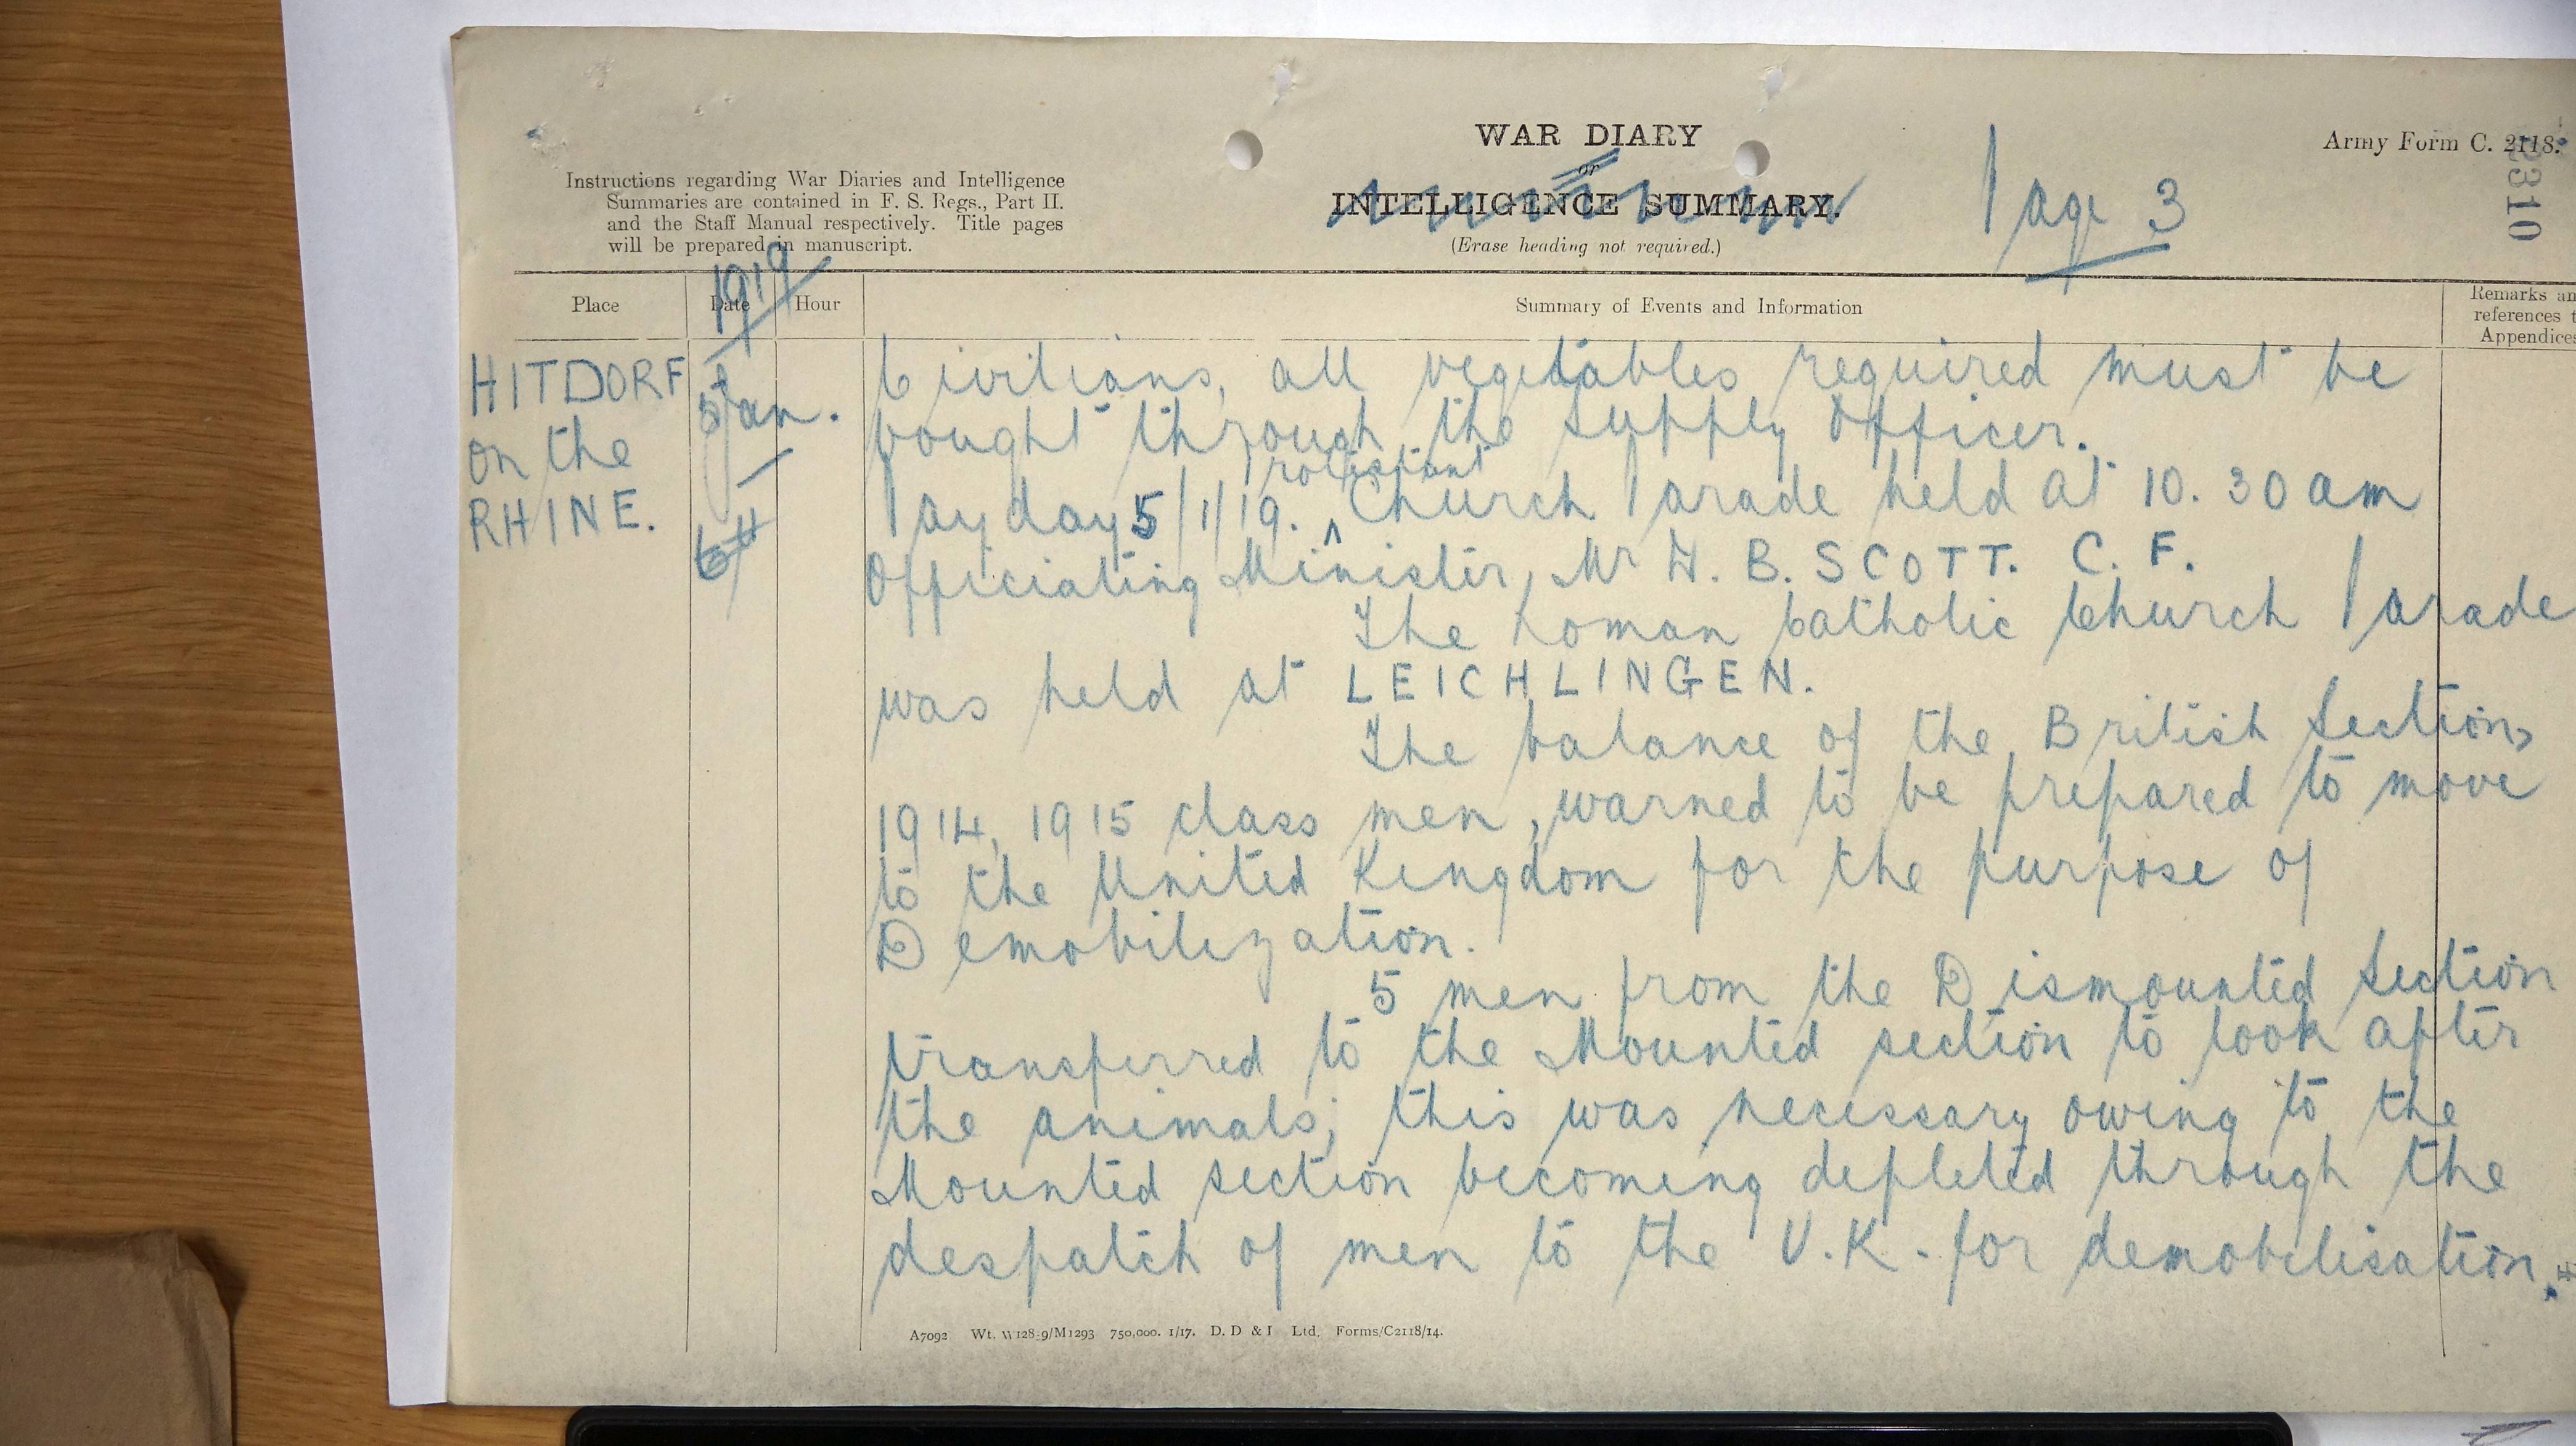 WAR DIARY
or
INTELLIGENCE SUMMARY.
(Erase heading not required.)
Army Form C. 2118.
2310
Page 3
Instructions regarding War Diaries and Intelligence
Summaries are contained in F. S. Regs., Part II.
and the Staff Manual respectively. Title pages
will be prepared in manuscript.
1919
Place Date Hour Summary of Events and Information Remarks an
references t
Appendices
HITDORF
on the
RHINE.
Jan.
6th
Civilians, all vegetables required must be
bought through the Supply Officer.
Pay day 5/1/19. ^ Protestant Church Parade held at 10.30 am
Officiating Minister, Mr W. B. SCOTT. C. F.
The Roman Catholic Church Parade
was held at LEICHLINGEN.
The balance of the British Section,
1914, 1915 class men, warned to be prepared to move
to the United Kingdom for the purpose of
Demobilization.
5 men from the Dismounted Section
transferred to the Mounted section to look after
the animals; this was necessary owing to the
Mounted section becoming depleted through the
despatch of men to the U.K. for demobilisation.
A7092 Wt. W128.9/M1293 750,000. 1/17. D. D & I Ltd. Forms/C2118/14.